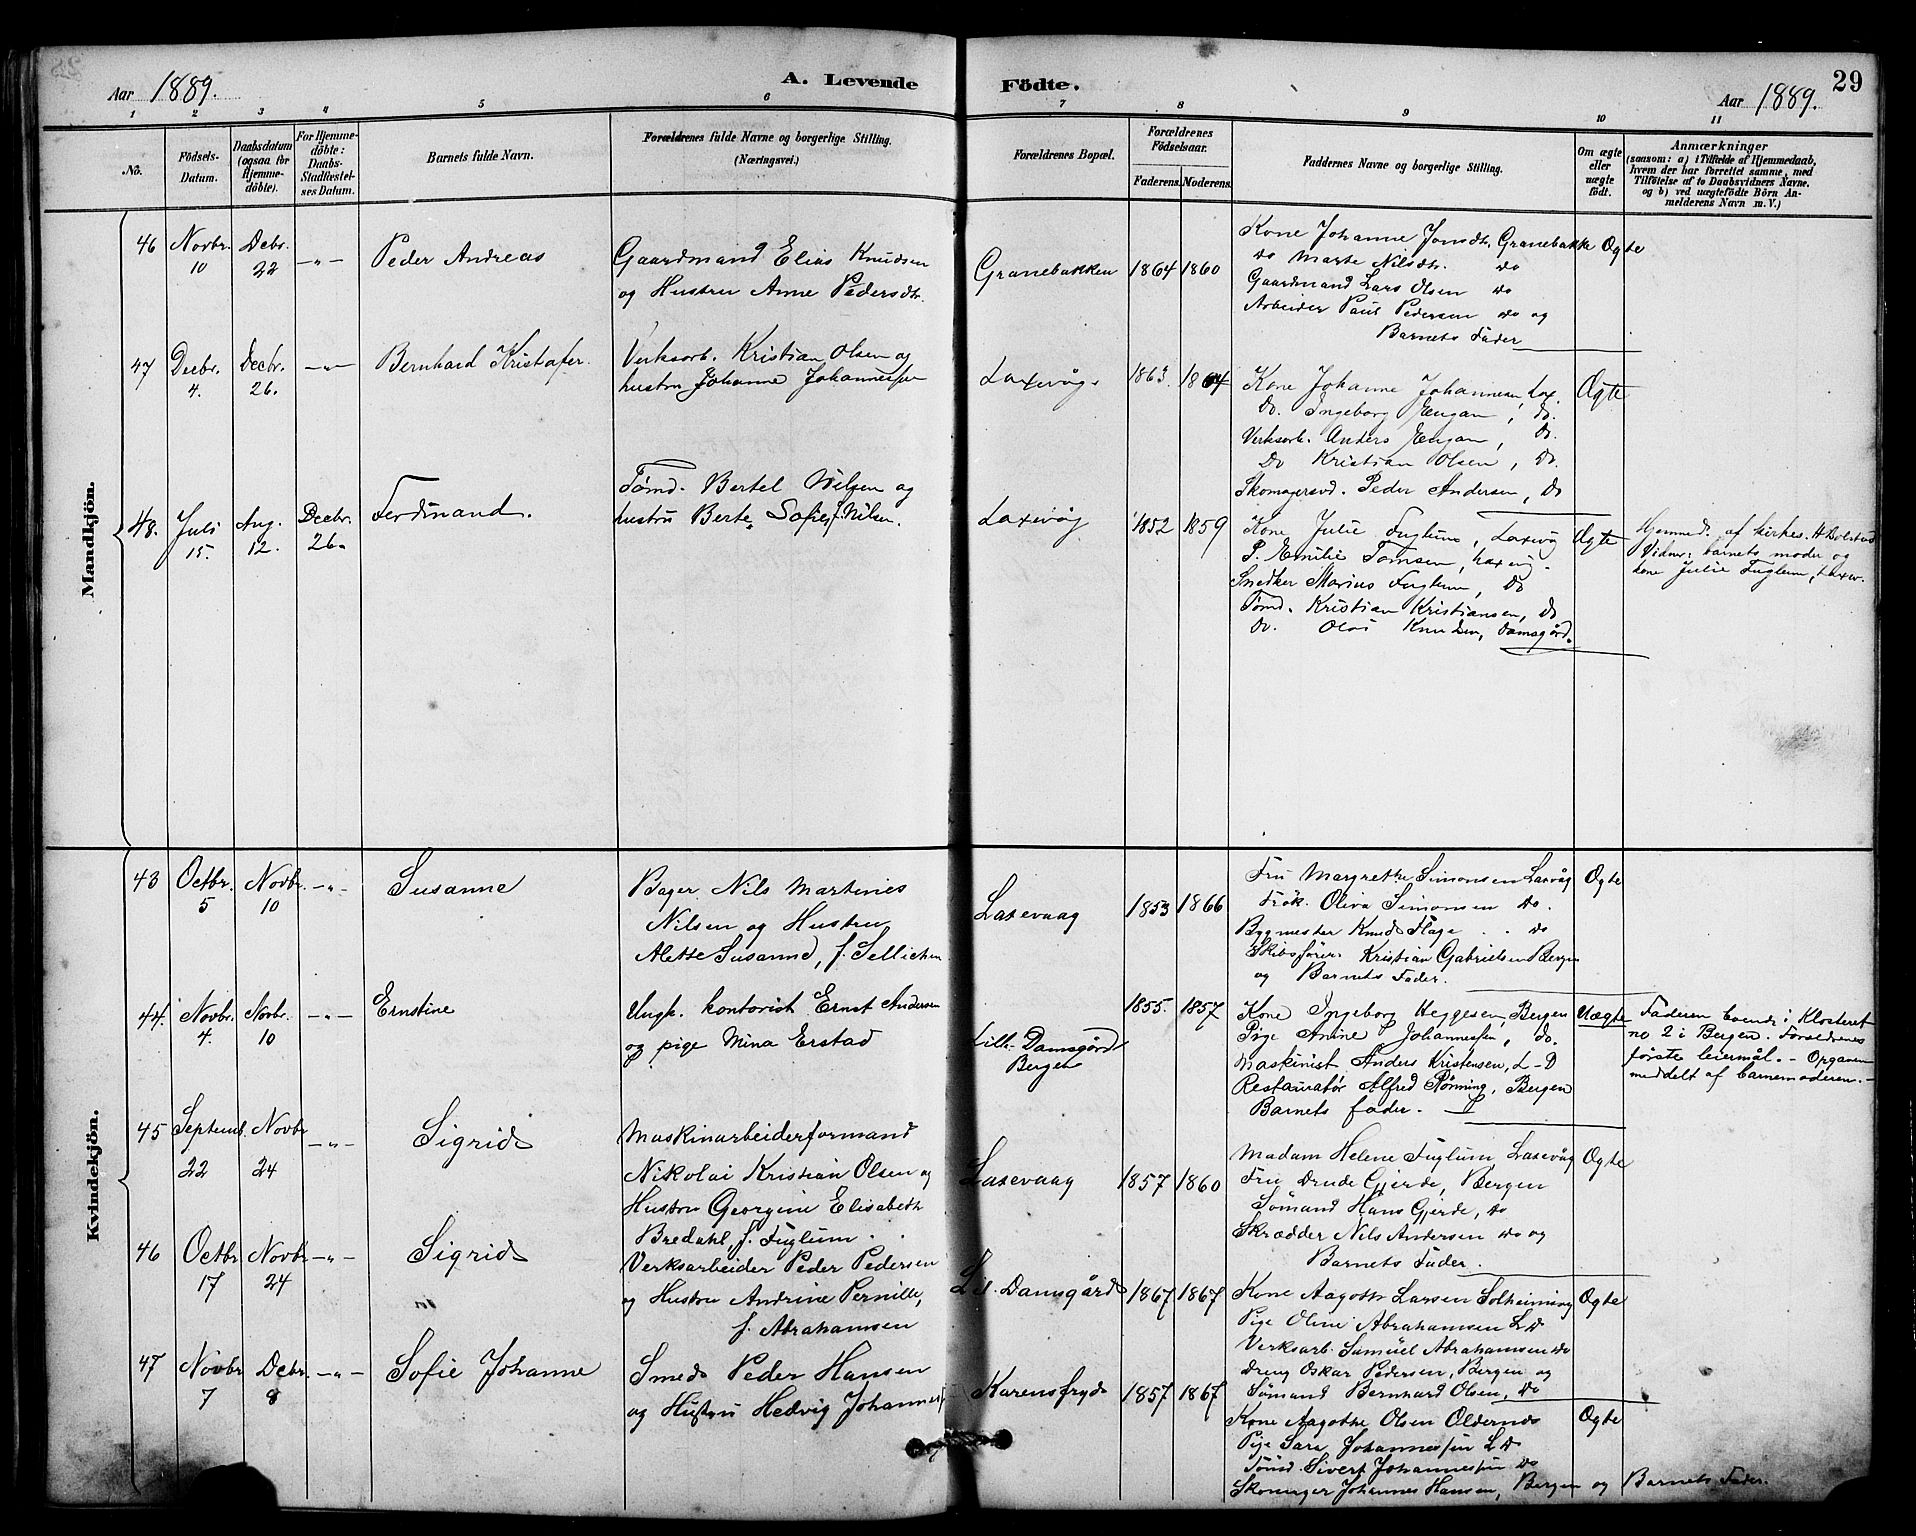 Aar 1889. A. Levende Födte. Aar 1889. 29
1 2 3 4 5 6 7 8 9 10 11
No.
Födsels-Datum.
Daabsdatum (ogsaa for Hjemmedöbte).
For Hjemmedöbte: Daabs-Stadfæstelses Datum.
Barnets fulde Navn.
Forældrenes fulde Navne og borgerlige Stilling.
(Næringsvei.)
Forældrenes Bopæl.
Forældrenes Födselsaar.
Faderens. Moderens.
Faddernes Navne og borgerlige Stilling.
Om ægte eller uægte födt.
Anmærkninger
(saasom: a) i Tilfælde af Hjemmedaab,
hvem der har forrettet samme, med
Tilföielse af to Daabsvidners Navne.
og b) ved uægtefödte Börn An-
melderens Navn m. V.)
Mandkjön.
46 Novbr. 10 Debr. 22 -"- Peder Andreas
Gaardmand Elias Knudsen
og Hustru Anne Pedersdtr.
Granebakken 1864 1860
Kone Johanne Jonsdtr. Granebakke Ægte
do Marte Nilsdtr. do
Gaardmand Lars Olsen do
Arbeider Paul Pedersen do og
Barnets Fader
47 Decbr. 4. Decbr. 26. -"- Bernhard Kristofer.
Verksarb. Kristian Olsen og
hustru Johanne Johannessen
Laxevåg. 1863. 1864
Kone Johanne Johannesen, Lax. Ægte
Do. Ingeborg Engan, do.
Verksarb. Anders Engan, do.
Do Kristian Olsen, do.
Skomagersvd. Peder Andersen, do
48. Juli 15. Aug. 12. Decbr. 26. Ferdinand.
Tømd. Bertel Nilsen og
hustru Berte Sofie f. Nilsen.
Laxevåg 1852 1859
Kone Julie Fuglum, Laxevåg Ægte
P. Emilie Tomsen, Laxevåg.
Snedker Marius Fuglum, do
Tømd. Kristian Kristiansen, do
do. Olai Knudsen, Damsgård.
Hjemmed. af kirkes.
Vidner: barnets moder og
kone Julie Fuglum, Laxev.
Kvindekjön.
43 Octbr. 5 Novbr. 10 -"- Susanne
Bager Nils Martinus
Nilsen og Hustru
Alette Susanne, f. Sellichen
Laxevaag 1853 1866
Fru Margrethe Simonsen Laxvåg Ægte
Frøk. Oliva Simonsen do.
Bygmester Knud Flage do
Skibsfører Kristian Gabrielsen Bergen
og Barnets Fader.
44. Novbr. 4. Novbr. 10 -"- Ernstine
Ungk. kontorist Ernst Andersen
og pige Mina Erstad
Lille Damsgård
Bergen
1855. 1857
Kone Ingeborg Heggesen, Bergen Uægte
Pige Anine Johannessen, do.
Maskinist Anders Kristensen, L-D
Restauratør Alfred Rønning, Bergen
Barnets fader.
Faderen boende i Klosteret
no 2 i Bergen. Forældrenes
første leiermål. - Opgaven
meddelt af barnemoderen. -
45 Septemb. 22 Novbr 24 -"- Sigrid
Maskinarbeiderformand
Nikolai Kristian Olsen og
Hustru Georgine Elisabeth
Bredahl, f. Fuglum.
Laxevaag 1857 1860
Madam Helene Fuglum Laxevåg Ægte
Fru Drude Gjerde, Bergen
Sømand Hans Gjerde, do
Skrædder Nils Andersen do og
Barnets Fader.
46 Octbr 17 Novbr 24 -"- Sigrid
Verksarbeider Peder Pedersen
og Hustru Andrine Pernille,
f. Abrahamsen
Lil. Damsgård 1867 1867
Kone Aagothe Larsen Solheimsvig Ægte
Pige Oline Abrahamsen L D
Verksarb. Samuel Abrahamsen do
dreng Oskar Pedersen, Bergen og
Sømand Bernhard Olsen, do
47 Novbr 7 Debr. 8 -"- Sofie Johanne
Smed Peder Hansen
og Hustru Hedvig Johannes
Karensfryd 1857 1867
Kone Aagothe Olsen Ægte
Pige Sara Johannessen L D
Tømd. Sivert Johannessen do
Skomager Johannes Hansen, Bergen og Barnets Fader.